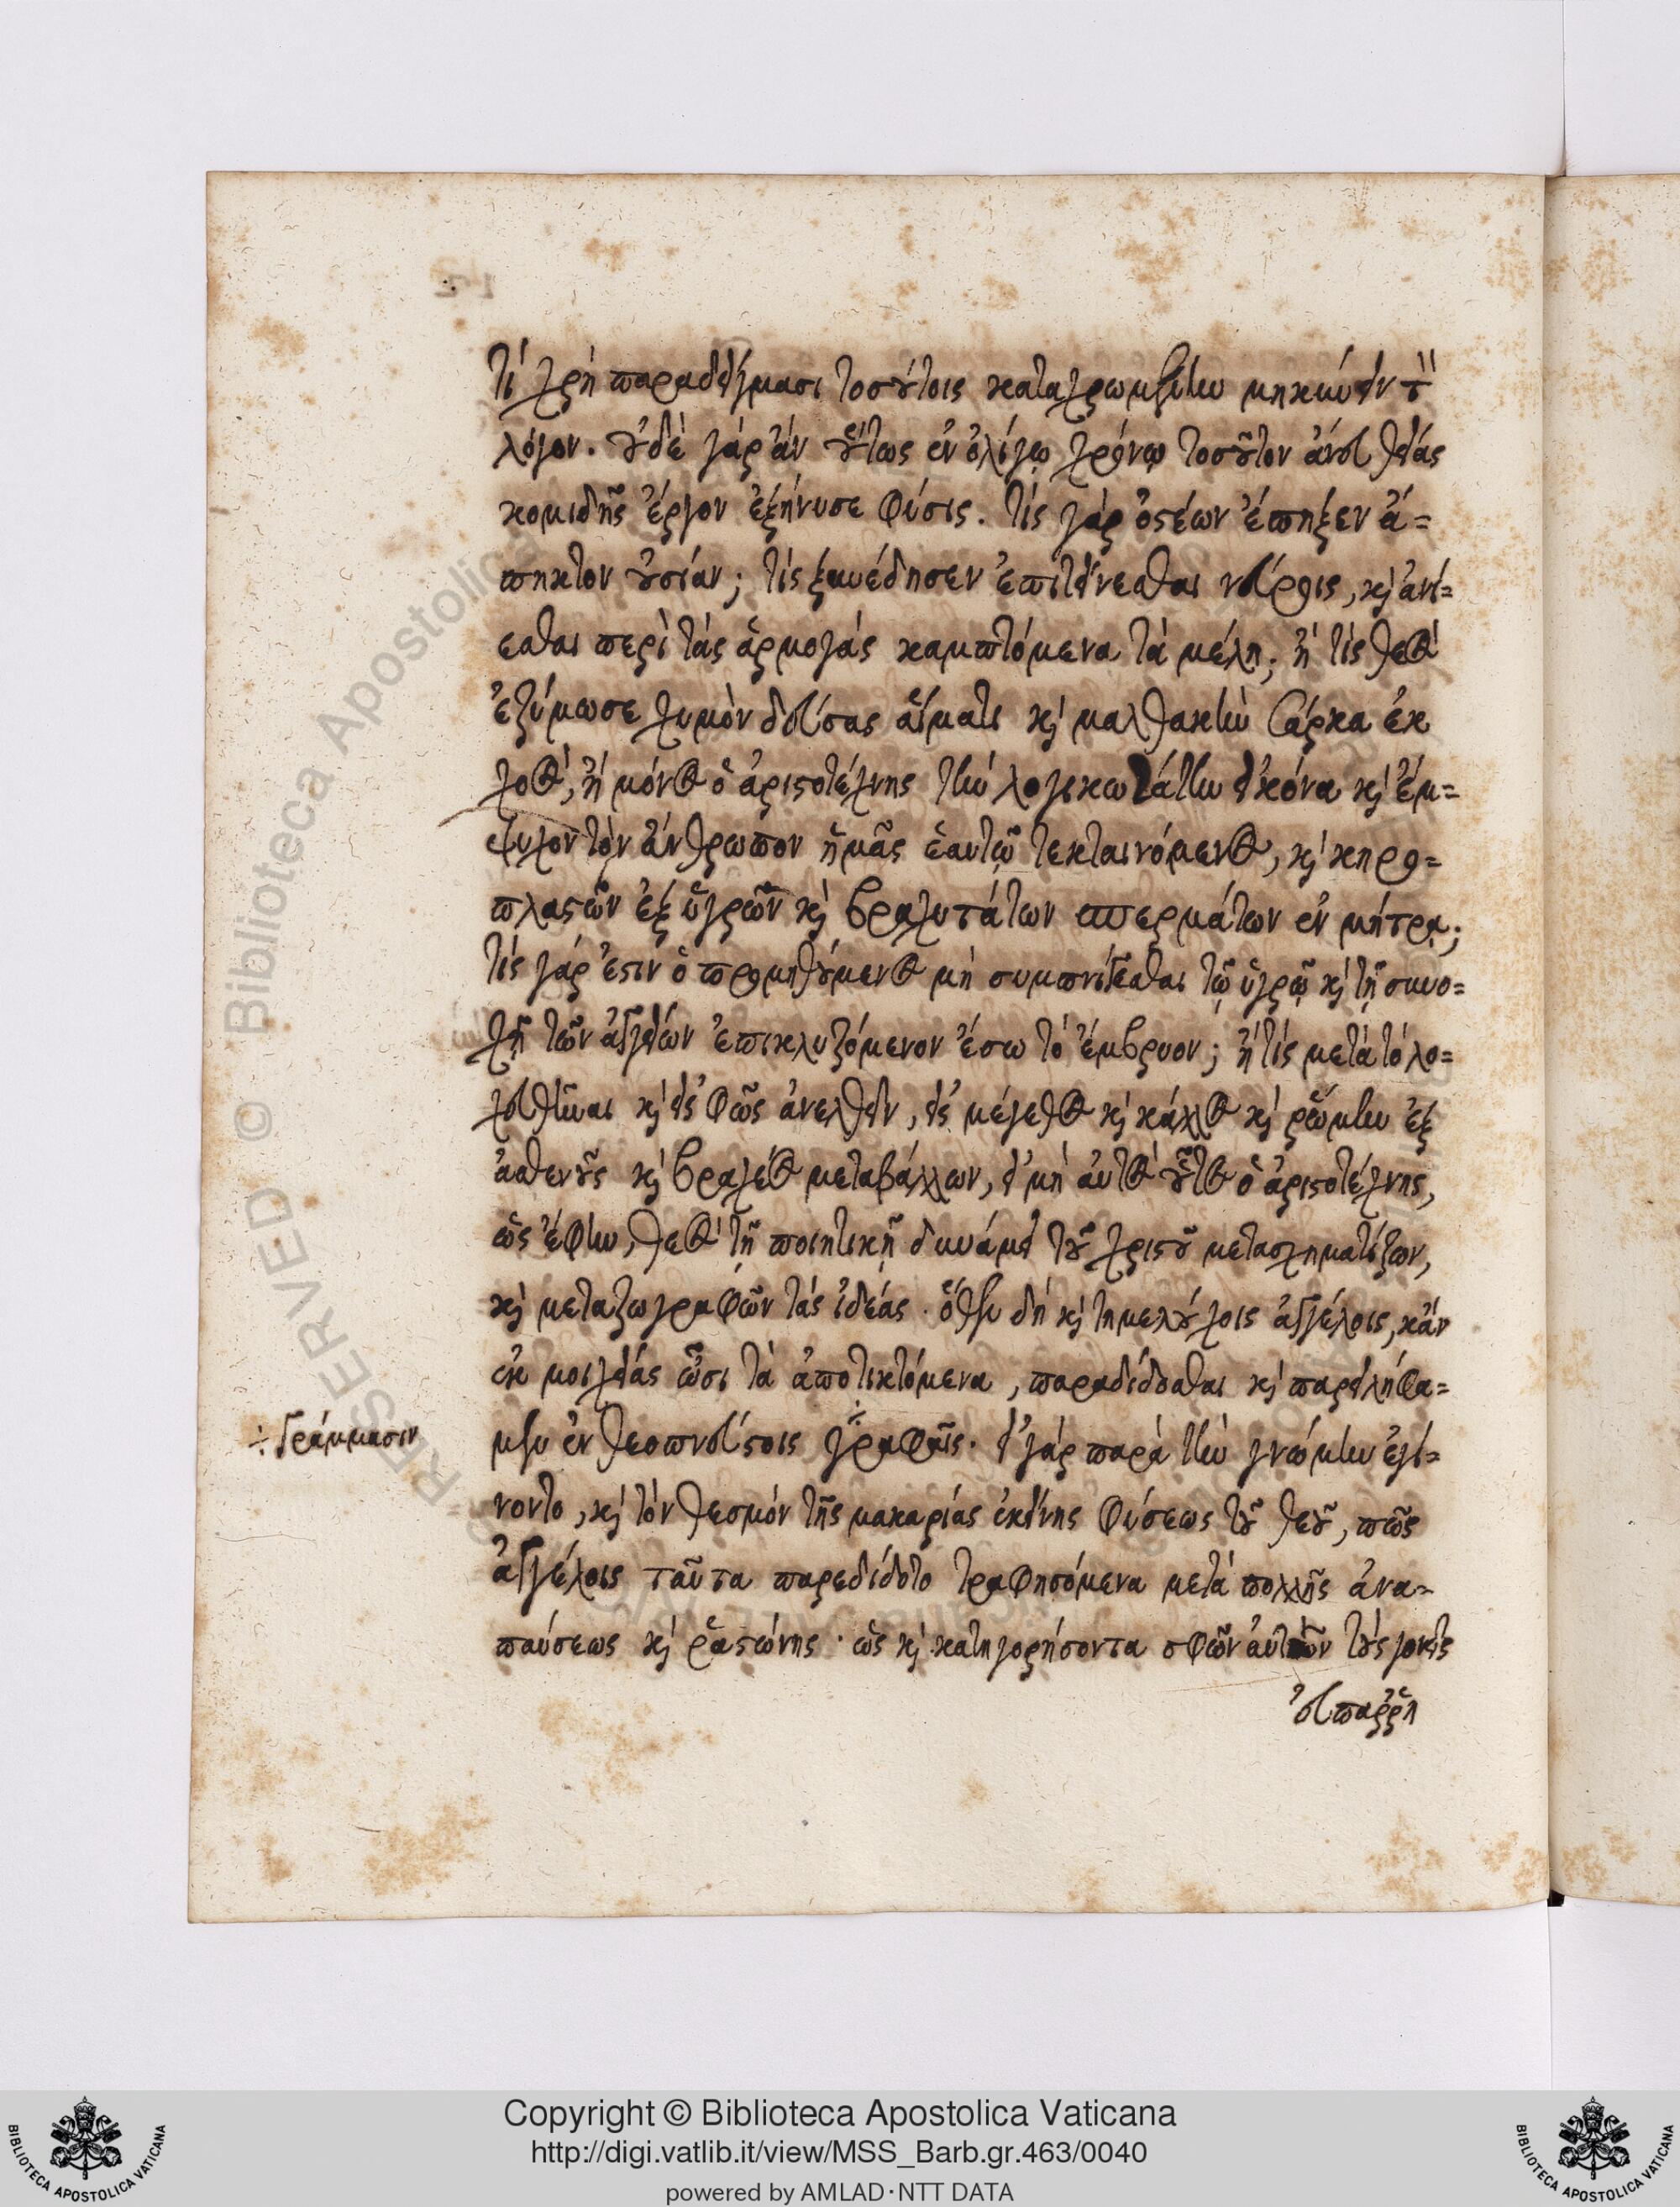 τί χρὴ παραδείγμασι τοσούτοις καταχρωμένην μηκύνειν τὸν
λόγον. οὐδὲ γὰρ ἂν οὕτως ἐν ὀλίγῳ χρόνῳ τοσοῦτον ἄνευ θείας
κομιδῆς ἔργον ἐξήνυσε φύσις. τίς γὰρ ὀστέων ἔπηξεν ἄ=
πηκτον οὐσίαν; τίς ξυνέδησεν ἐπιτείνεσθαι νεύροις, καὶ ἀνί=
εσθαι περὶ τὰς ἁρμογὰς καμπτόμενα τὰ μέλη; ἢ τίς θεὸς
ἐζύμωσε χυμὸν δεύσας αἵματι καὶ μαλθακὴν σάρκα ἐκ
χοὸς, ἢ μόνος ὁ ἀριστοτέχνης τὴν λογικωτάτην εἰκόνα καὶ ἔμ=
ψυχον τὸν ἄνθρωπον ἡμᾶς ἑαυτῷ τεκταινόμενος, καὶ κηρο=
πλαστῶν ἐξ ὑγρῶν καὶ βραχυτάτων σπερμάτων ἐν μήτρᾳ;
τίς γάρ ἐστιν ὁ προμηθούμενος μὴ συμπνίγεσθαι τῷ ὑγρῷ καὶ τῇ συνο=
χῇ τῶν ἀγγείων ἐπικλυζόμενον ἔσω τὸ ἔμβρυον; ἢ τίς μετὰ τὸ λο=
χευθῆναι καὶ εἰς φῶς ἀνελθεῖν, εἰς μέγεθος καὶ κάλλος καὶ ῥώμην ἐξ
ἀσθενοῦς καὶ βραχέος μεταβάλλων, εἰ μὴ αὐτὸς οὗτος ὁ ἀριστοτέχνης,
ὡς ἔφην, θεὸς τῇ ποιητικῇ δυνάμει τοῦ χριστοῦ μετασχηματίζων,
καὶ μεταζωγραφῶν τὰς ἰδέας. ὅθεν δὴ καὶ τημελούχοις ἀγγέλοις, κἂν
ἐκ μοιχείας ὦσι τὰ ἀποτικτόμενα, παραδίδοσθαι καὶ παρειλήφα=
μεν ἐν θεοπνεύστοις γραφαῖς. εἰ γὰρ παρὰ τὴν γνώμην ἐγί=
νοντο, καὶ τὸν θεσμὸν τῆς μακαρίας ἐκείνης φύσεως τοῦ θεοῦ, πῶς
ἀγγέλοις ταῦτα παρεδίδοτο τραφησόμενα μετὰ πολλῆς ἀνα=
παύσεως καὶ ῥᾳστώνης. ὡς καὶ κατηγορήσοντα σφῶν αὐτῶν τοὺς γονεῖς
εὐπαῤῥη
÷ γράμμασιν
Copyright © Biblioteca Apostolica Vaticana
http://digi.vatlib.it/view/MSS_Barb.gr.463/0040
powered by AMLAD·NTT DATA
BIBLIOTECA APOSTOLICA VATICANA
BIBLIOTECA APOSTOLICA VATICANA